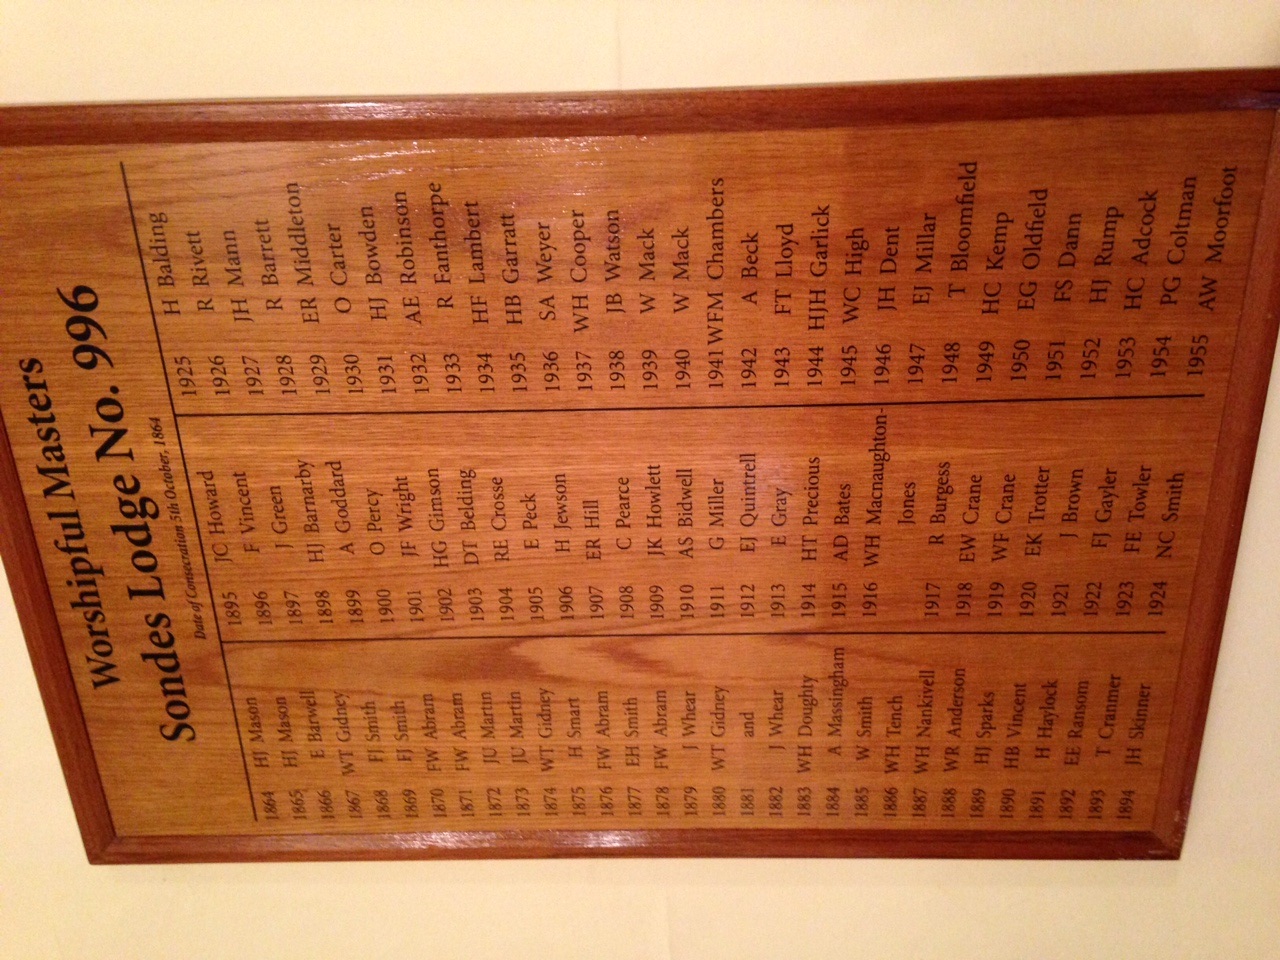 Worshipful Masters
Sondes Lodge No. 996
Date of Consecration 5th October, 1864
1864 HJ Mason
1865 HJ Mason
1866 E Barwell
1867 WT Gidney
1868 FJ Smith
1869 FJ Smith
1870 FW Abram
1871 FW Abram
1872 JU Martin
1873 JU Martin
1874 WT Gidney
1875 H Smart
1876 FW Abram
1877 EH Smith
1878 FW Abram
1879 J Whear
1880 WT Gidney
1881 and
1882 J Whear
1883 WH Doughty
1884 A Massingham
1885 W Smith
1886 WH Tench
1887 WH Nankivell
1888 WR Anderson
1889 HJ Sparks
1890 HB Vincent
1891 H Haylock
1892 EE Ransom
1893 T Cranmer
1894 JH Skinner
1895 JC Howard
1896 F Vincent
1897 J Green
1898 HJ Barnarby
1899 A Goddard
1900 O Percy
1901 JF Wright
1902 HG Gimson
1903 DT Belding
1904 RE Crosse
1905 E Peck
1906 H Jewson
1907 ER Hill
1908 C Pearce
1909 JK Howlett
1910 AS Bidwell
1911 G Miller
1912 EJ Quintrell
1913 E Gray
1914 HT Precious
1915 AD Bates
1916 WH Macnaughton-
Jones
1917 R Burgess
1918 EW Crane
1919 WF Crane
1920 EK Trotter
1921 J Brown
1922 FJ Gayler
1923 FE Towler
1924 NC Smith
1925 H Balding
1926 R Rivett
1927 JH Mann
1928 R Barrett
1929 ER Middleton
1930 O Carter
1931 HJ Bowden
1932 AE Robinson
1933 R Fanthorpe
1934 HF Lambert
1935 HB Garratt
1936 SA Weyer
1937 WH Cooper
1938 JB Watson
1939 W Mack
1940 W Mack
1941 WFM Chambers
1942 A Beck
1943 FT Lloyd
1944 HJH Garlick
1945 WC High
1946 JH Dent
1947 EJ Millar
1948 T Bloomfield
1949 HC Kemp
1950 EG Oldfield
1951 FS Dann
1952 HJ Rump
1953 HC Adcock
1954 PG Coltman
1955 AW Moorfoot